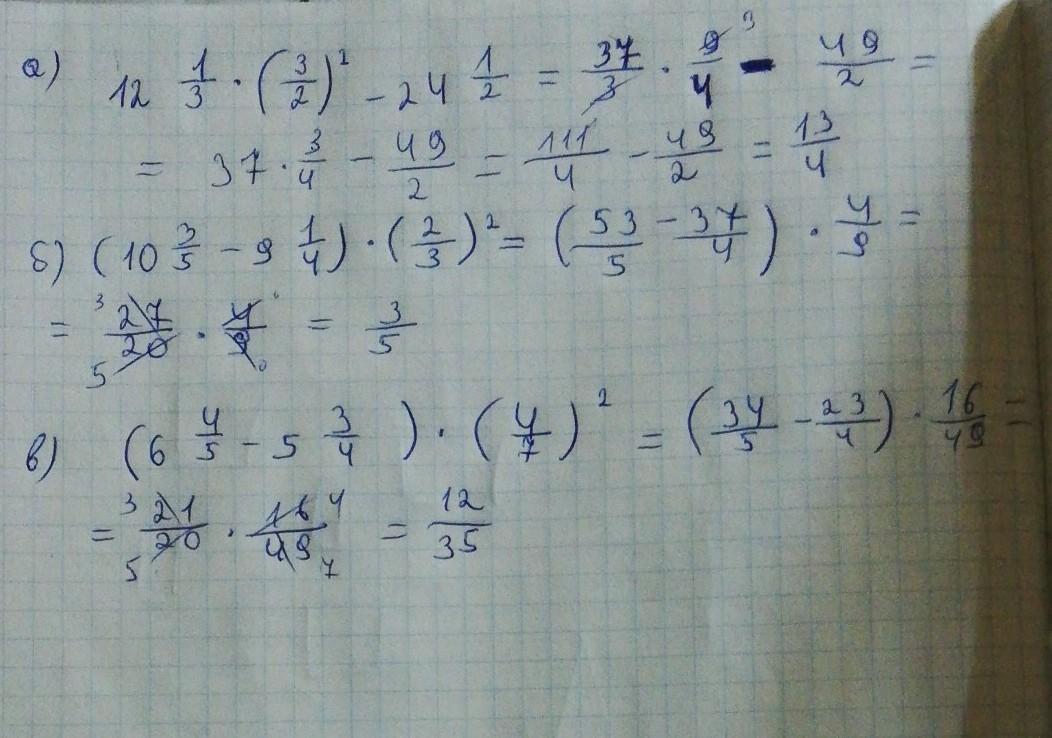 а) 12 1/3 · (3/2)² - 24 1/2 = 37/3 · 9/4 ³ - 49/2 =
= 37 · 3/4 - 49/2 = 111/4 - 49/2 = 13/4
б) (10 3/5 - 9 1/4) · (2/3)² = (53/5 - 37/4) · 4/9 =
= ³ 27/20 5 · 4/9 = 3/5
в) (6 4/5 - 5 3/4) · (4/7)² = (34/5 - 23/4) · 16/49 =
= ³ 21/20 5 · 16/49 4 7 = 12/35